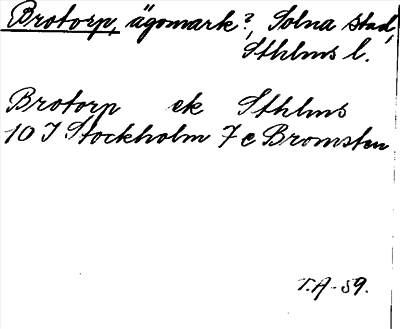 Brotorp, ägomark?, Solna stad,
Sthlms l.
Brotorp ek Sthlms
10 I Stockholm 7 e Bromsten
T.A-59.